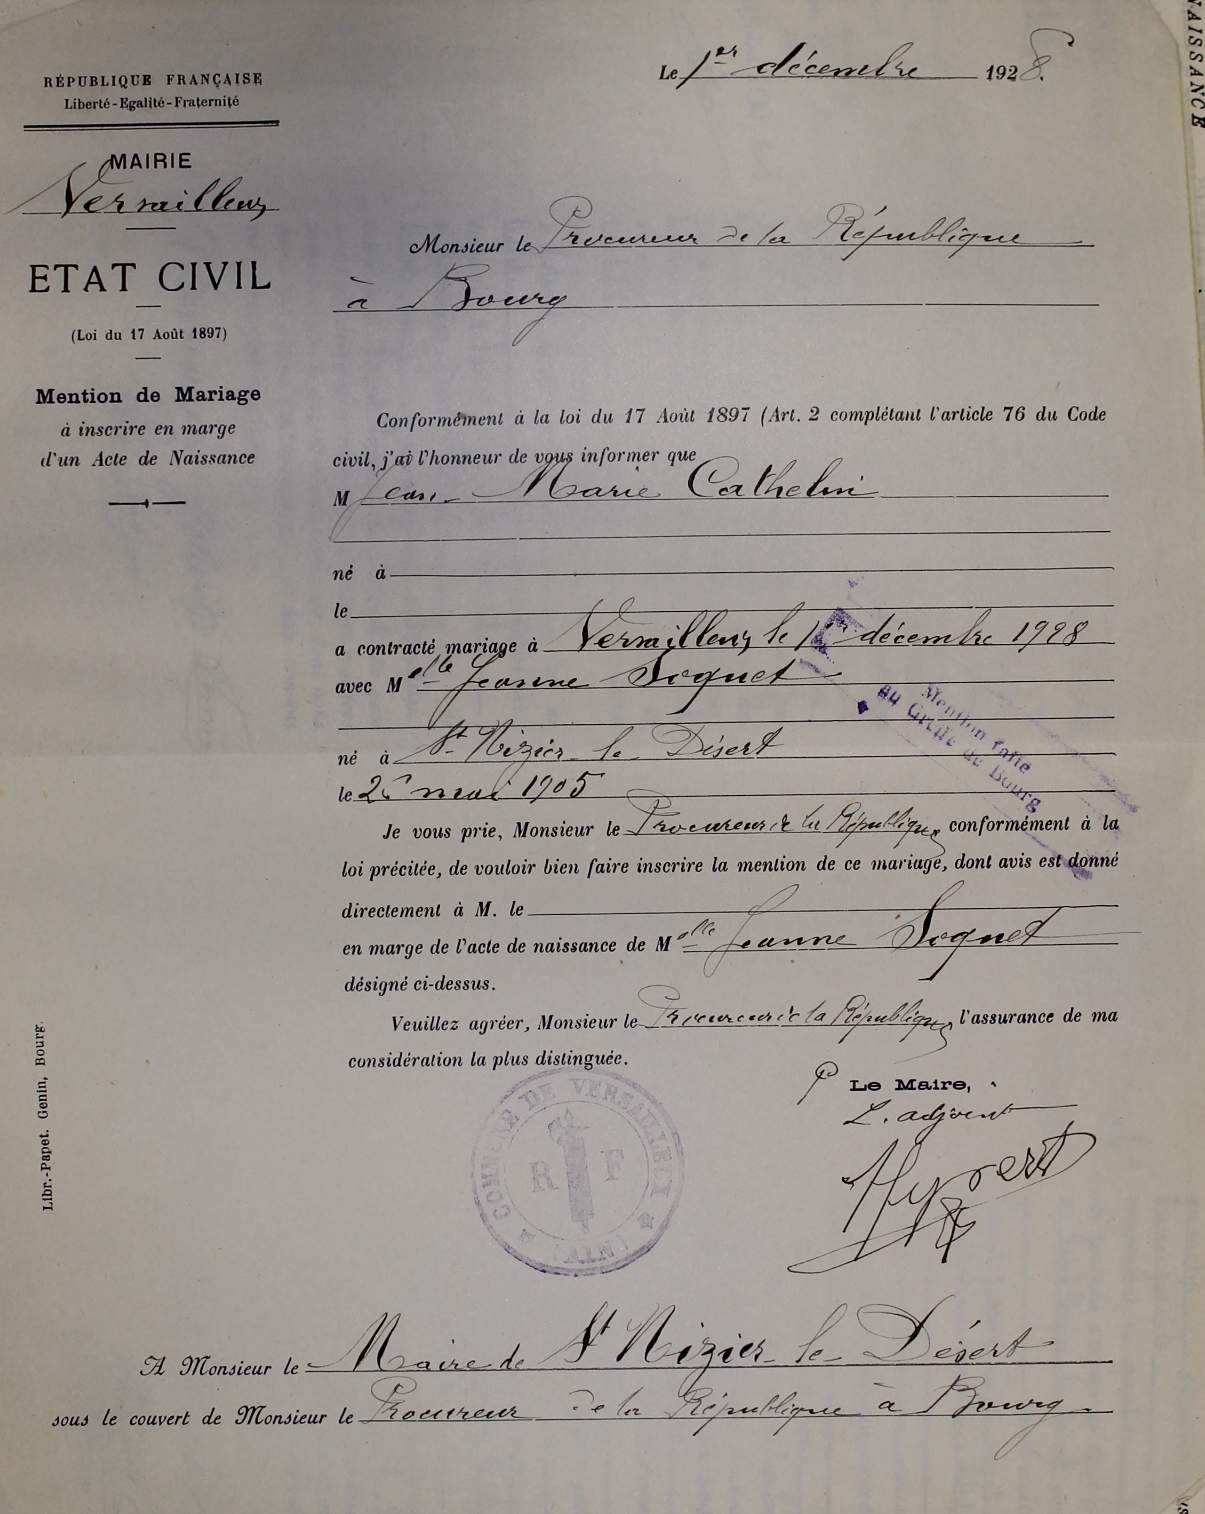 NAISSANCE
Le 1er décembre 1928.
RÉPUBLIQUE FRANÇAISE
Liberté-Egalité-Fraternité
MAIRIE
Versailleux
ETAT CIVIL
(Loi du 17 Août 1897)
Mention de Mariage
à inscrire en marge
d'un Acte de Naissance
Monsieur le Procureur de la République
à Bourg
Conformément à la loi du 17 Août 1897 (Art. 2 complétant l'article 76 du Code
civil, j'ai l'honneur de vous informer que
M Jean-Marie Cathelin
né à
le
a contracté mariage à Versailleux le 1er décembre 1928
avec Melle Jeanne Soquet
né à St Nizier-le-Désert
le mai 1905
Mention faite
au Greffe de Bourg
Je vous prie, Monsieur le Procureur de la République conformément à la
loi précitée, de vouloir bien faire inscrire la mention de ce mariage, dont avis est donné
directement à M. le
en marge de l'acte de naissance de Melle Jeanne Soquet
désigné ci-dessus.
Veuillez agréer, Monsieur le Procureur de la République, l'assurance de ma
considération la plus distinguée.
P Le Maire,
L'adjoint
COMMUNE DE VERSAILLEUX
R F
(AIN)
Libr.-Papet. Genin, Bourg.
A Monsieur le Maire de St Nizier-le-Désert
sous le couvert de Monsieur le Procureur de la République à Bourg